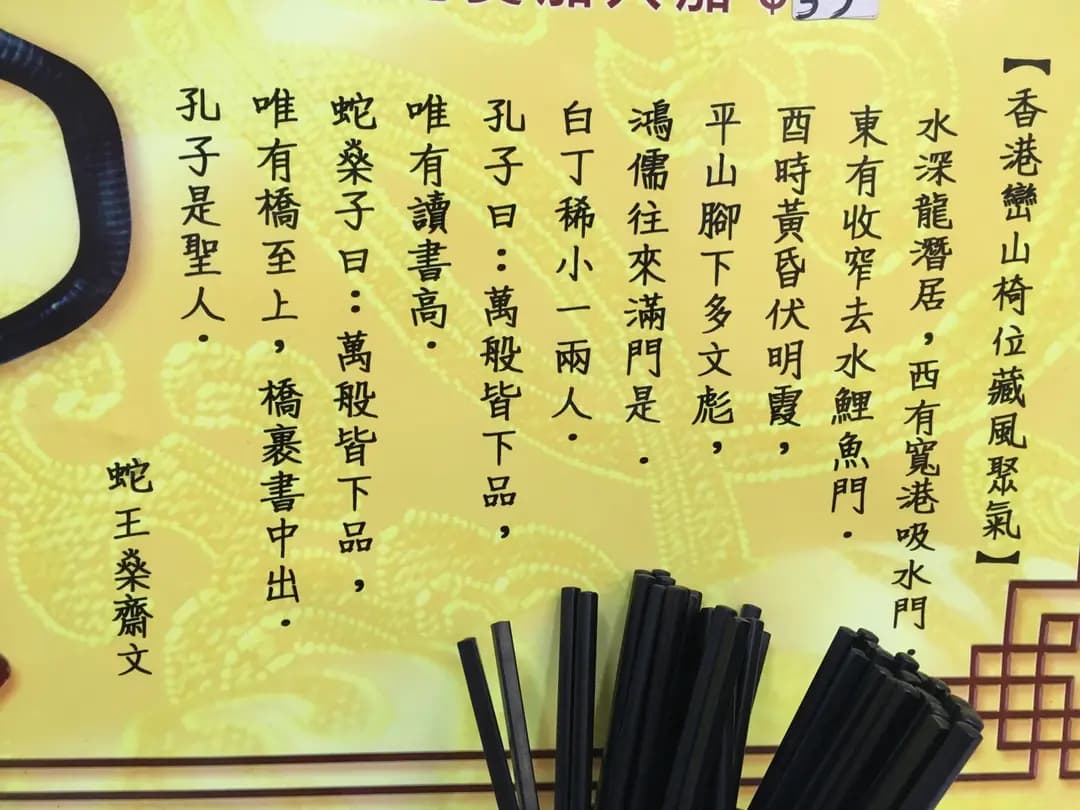 【香港巒山椅位藏風聚氣】
水深龍潛居，西有寬港吸水門
東有收窄去水鯉魚門．
酉時黃昏伏明霞，
平山腳下多文彪，
鴻儒往來滿門是．
白丁稀小一兩人．
孔子曰：萬般皆下品，
唯有讀書高．
蛇燊子曰：萬般皆下品，
唯有橋至上，橋裏書中出．
孔子是聖人．
蛇王燊齋文